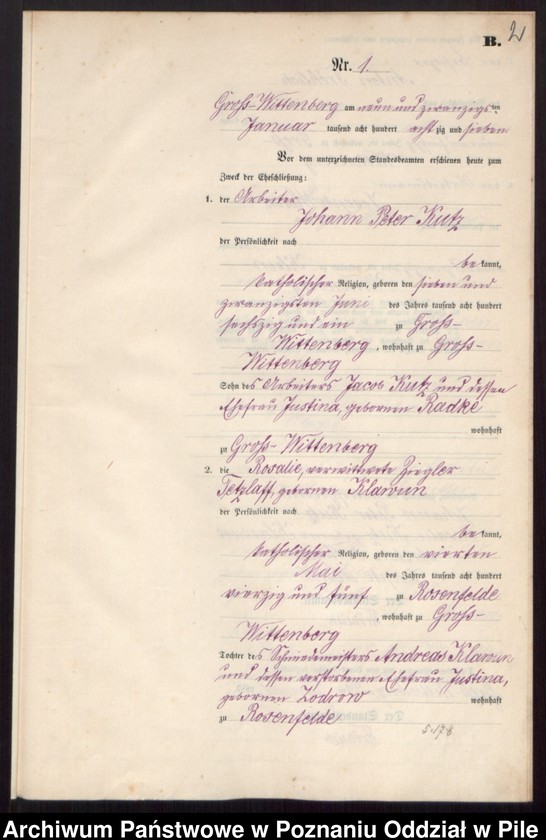 B. 2
Nr. 1.
Groß-Wittenberg am neun und zwanzigsten
Januar tausend acht hundert achtzig und sieben
Vor dem unterzeichneten Standesbeamten erschienen heute zum
Zweck der Eheschließung:
1. der Arbeiter
Johann Peter Kutz
der Persönlichkeit nach
bekannt,
katholischer Religion, geboren den sieben und
zwanzigsten Juni des Jahres tausend acht hundert
sechszig und ein zu Groß-
Wittenberg, wohnhaft zu Groß-
Wittenberg
Sohn des Arbeiters Jacob Kutz und dessen
Ehefrau Justina, gebornen Radke
wohnhaft
zu Groß-Wittenberg
2. die Rosalie, verwittwete Ziegler
Tetzlaff, gebornen Klawun
der Persönlichkeit nach
bekannt,
katholischer Religion, geboren den vierten
Mai des Jahres tausend acht hundert
vierzig und fünf zu Rosenfelde
, wohnhaft zu Groß-
Wittenberg
Tochter des Schmiedemeisters Andreas Klawun
und dessen verstorbenen Ehefrau Justina,
gebornen Zodrow wohnhaft
zu Rosenfelde
Archiwum Państwowe w Poznaniu Oddział w Pile